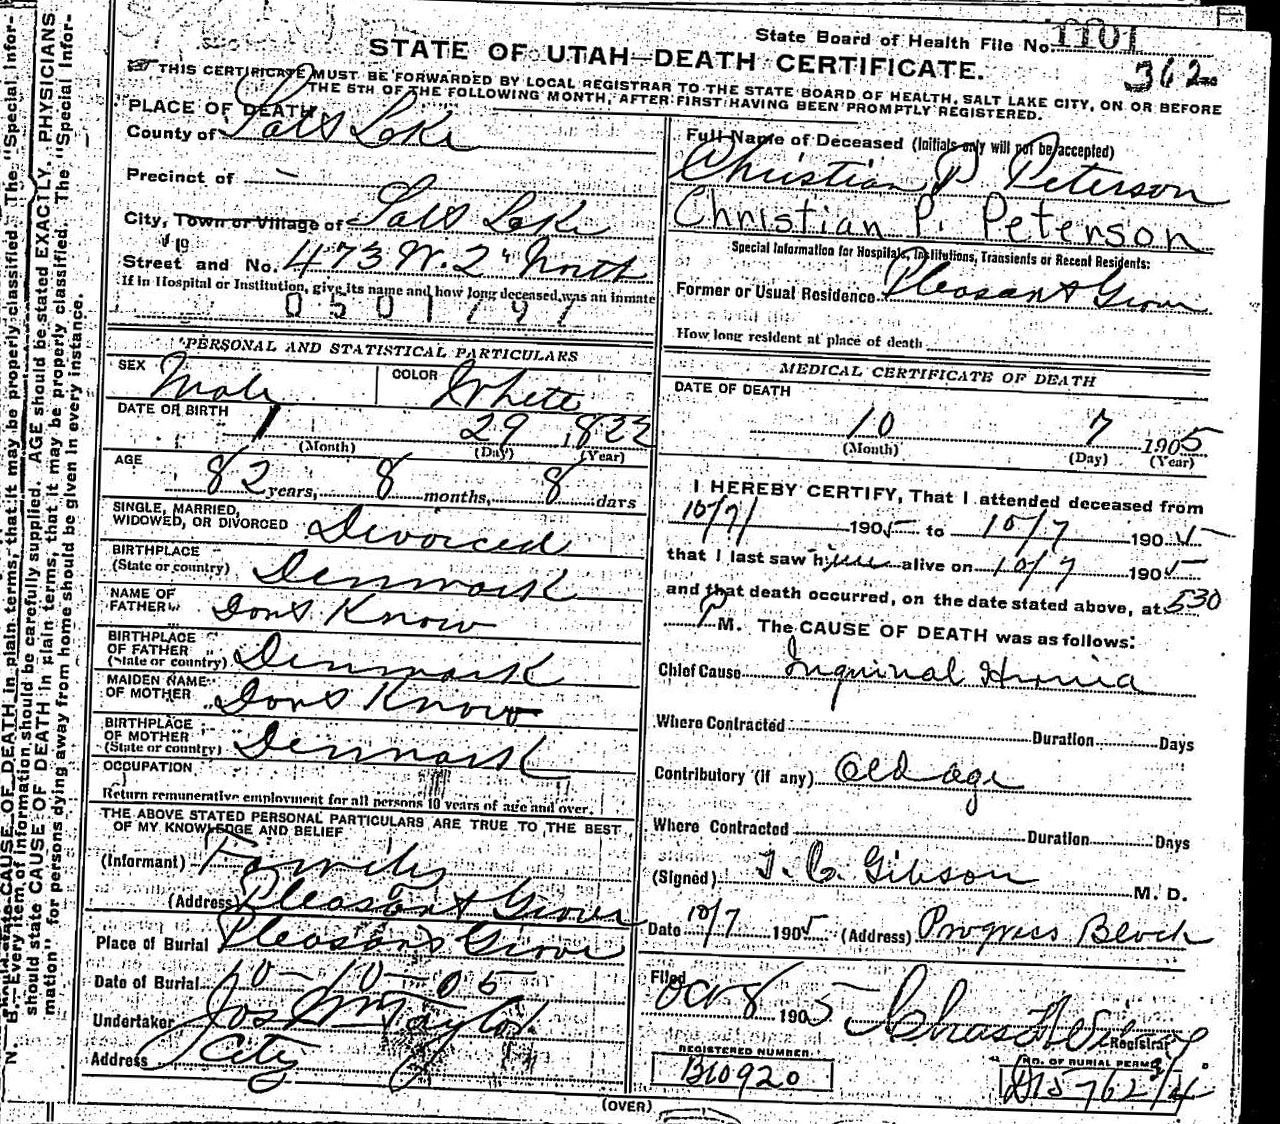 State Board of Health File No. 1101
362
STATE OF UTAH—DEATH CERTIFICATE.
THIS CERTIFICATE MUST BE FORWARDED BY LOCAL REGISTRAR TO THE STATE BOARD OF HEALTH, SALT LAKE CITY, ON OR BEFORE
THE 5TH OF THE FOLLOWING MONTH, AFTER FIRST HAVING BEEN PROMPTLY REGISTERED.
PLACE OF DEATH
County of Salt Lake
Precinct of —
City, Town or Village of Salt Lake
Street and No. 473 W. 2" North
If in Hospital or Institution, give its name and how long deceased was an inmate
0501797
PERSONAL AND STATISTICAL PARTICULARS
SEX Male COLOR White
DATE OF BIRTH 1 29 1822
(Month) (Day) (Year)
AGE 82 years, 8 months, 8 days
SINGLE, MARRIED,
WIDOWED, OR DIVORCED Divorced
BIRTHPLACE
(State or country) Denmark
NAME OF
FATHER Dont Know
BIRTHPLACE
OF FATHER
(State or country) Denmark
MAIDEN NAME
OF MOTHER Dont Know
BIRTHPLACE
OF MOTHER
(State or country) Denmark
OCCUPATION
Return remunerative employment for all persons 10 years of age and over
THE ABOVE STATED PERSONAL PARTICULARS ARE TRUE TO THE BEST
OF MY KNOWLEDGE AND BELIEF
(Informant) Family
(Address) Pleasant Grove
Place of Burial Pleasant Grove
Date of Burial 10-10-05
Undertaker Jos Wm Taylor
Address City
Full Name of Deceased (Initials only will not be accepted)
Christian P Peterson
Christian P. Peterson
Special Information for Hospitals, Institutions, Transients or Recent Residents:
Former or Usual Residence Pleasant Grove
How long resident at place of death
MEDICAL CERTIFICATE OF DEATH
DATE OF DEATH
10 7 1905
(Month) (Day) (Year)
I HEREBY CERTIFY, That I attended deceased from
10/7/ 1905 to 10/7 1905
that I last saw him alive on 10/7 1905
and that death occurred, on the date stated above, at 530
P M. The CAUSE OF DEATH was as follows:
Chief Cause Inguinal Hernia
Where Contracted Duration Days
Contributory (if any) Old age
Where Contracted Duration Days
(Signed) J. C. Gibson M. D.
Date 10/7 1905 (Address) Progress Block
Filed
Oct 8 1905 Registrar
REGISTERED NUMBER
B10920
NO. OF BURIAL PERMIT
(OVER)
N. B.—Every item of information should be carefully supplied. AGE should be stated EXACTLY. PHYSICIANS
should state CAUSE OF DEATH in plain terms, that it may be properly classified. The "Special Information" for persons dying away from home should be given in every instance.